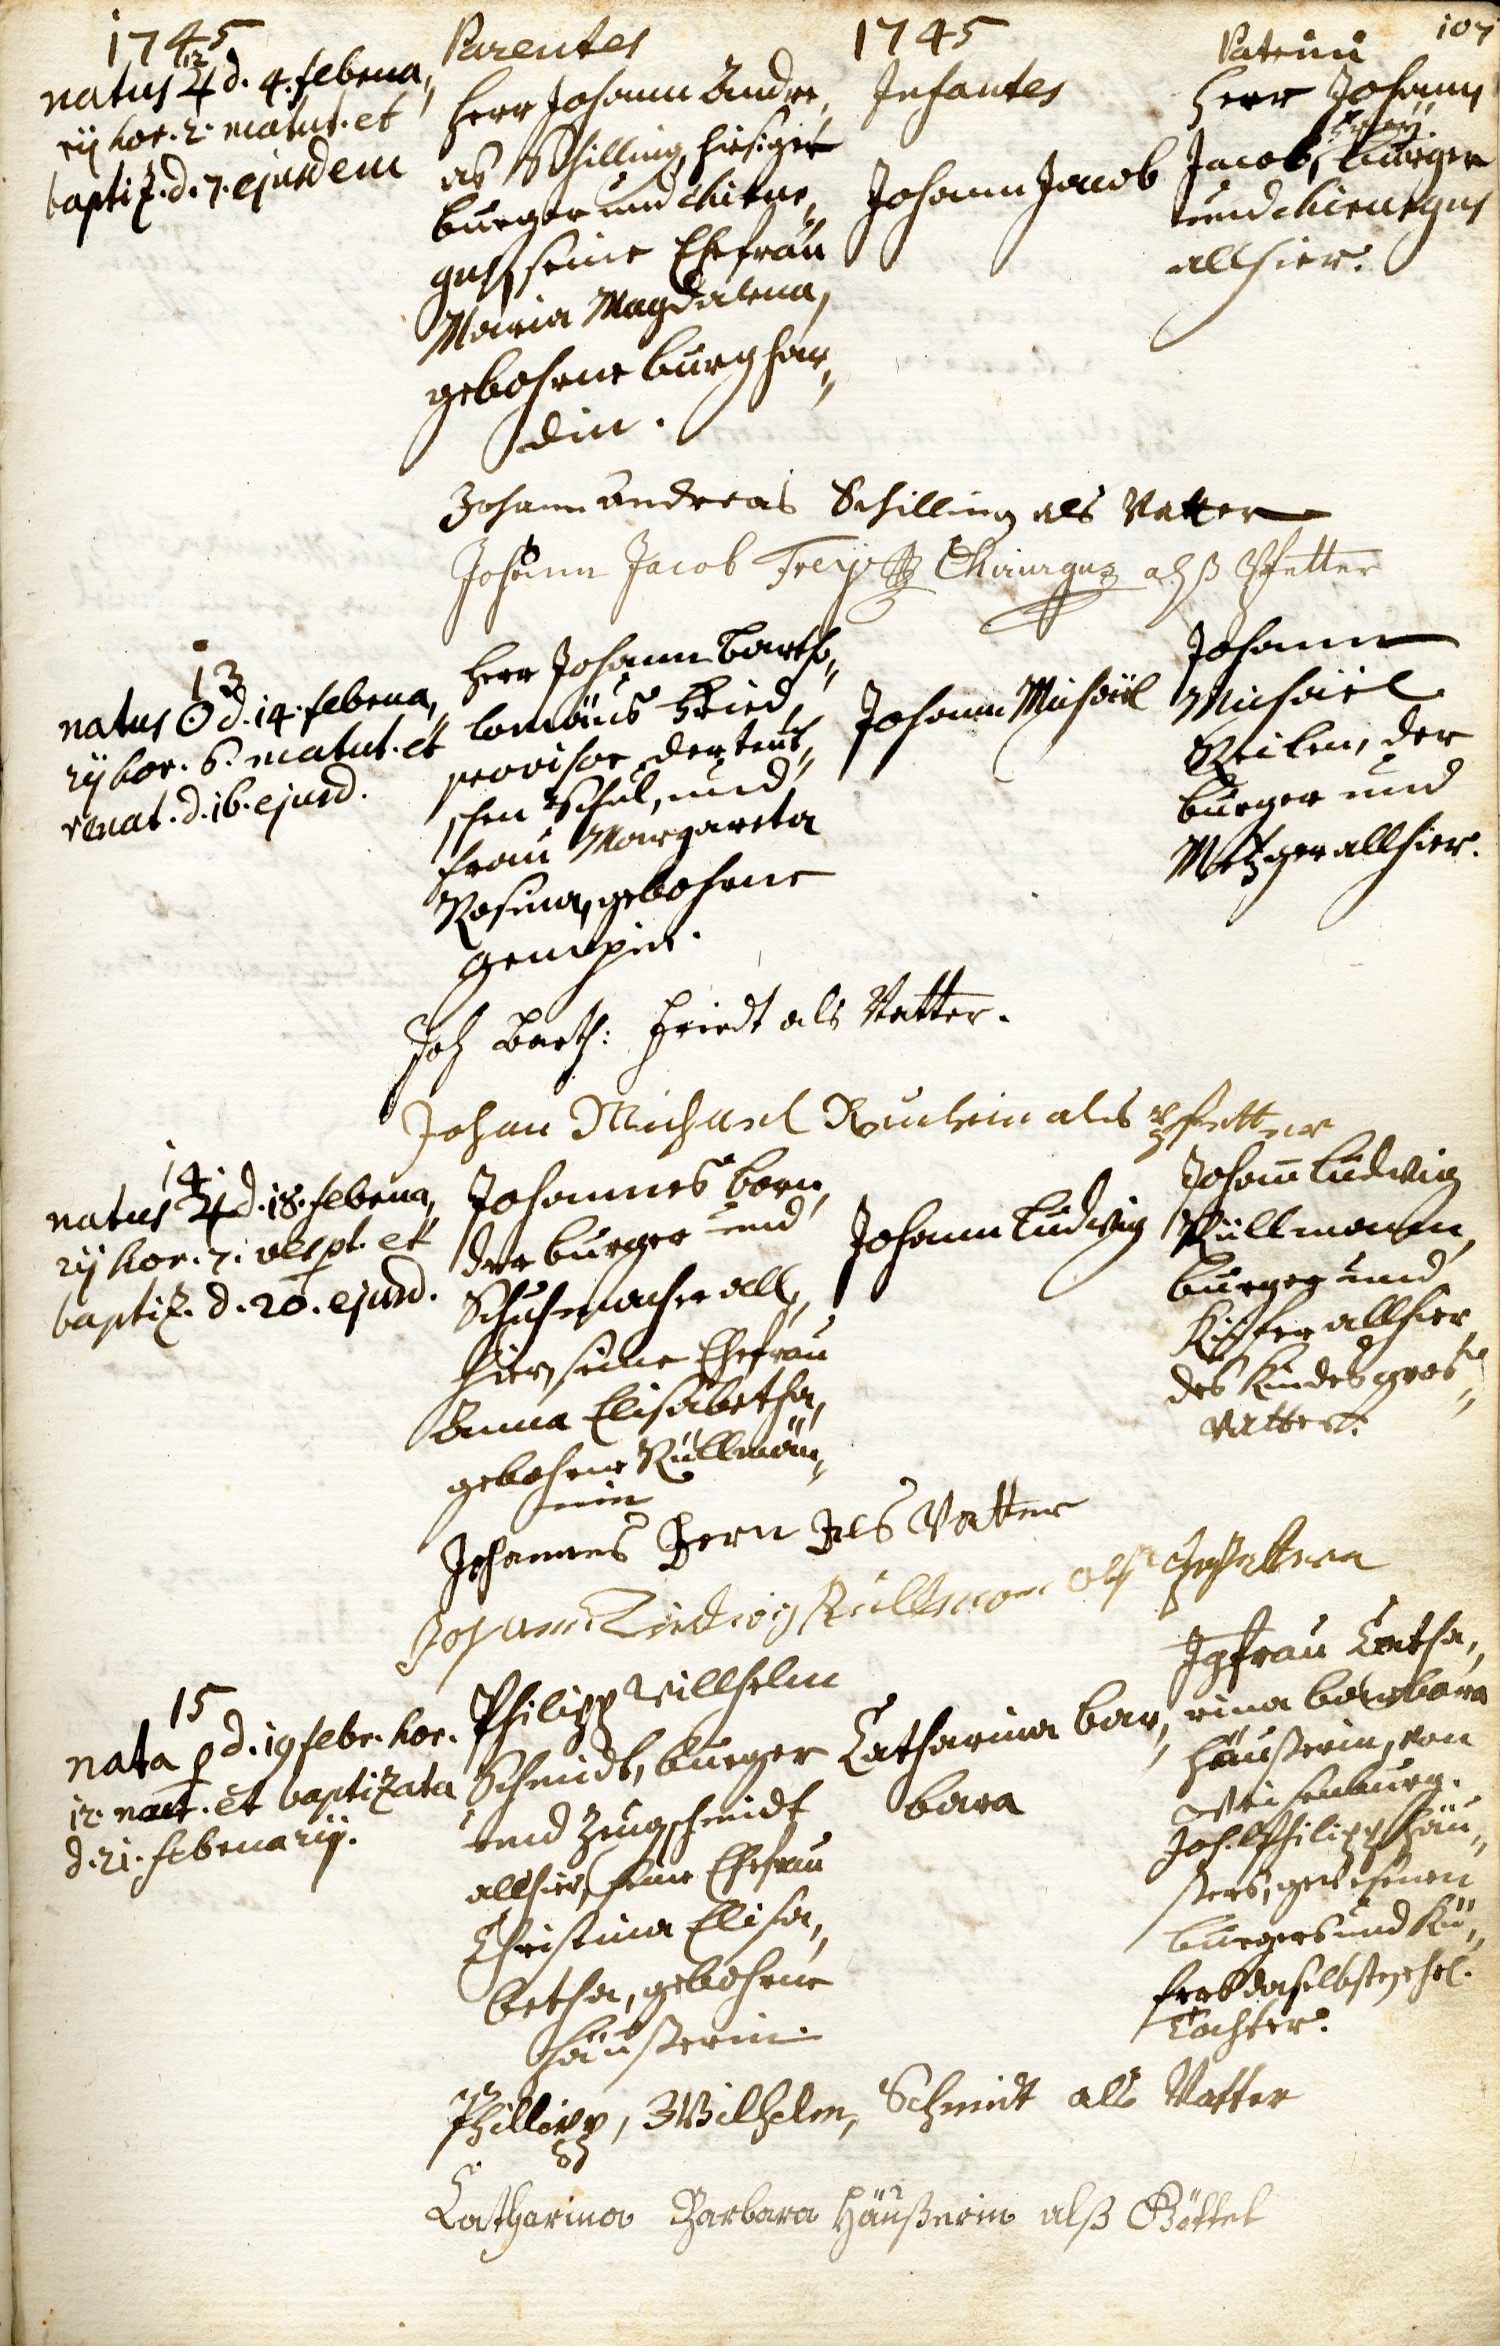 107
1745
Parentes
1745
Infantes
Patrini
12
natus ♃ d. 4. februa,,
rij hor. 2. matut. et
baptiz. d. 7. ejusdem
Herr Johann Andre,,
as Schilling, hiesiger
burger und chirur,,
gus, seine Ehefrau
Maria Magdalena,
gebohrne burghar,,
din.
Johann Jacob
Herr Johann
Jacob, Frey, burger
und chirurgus
allhier.
Johann Andreas Schilling als Vatter
Johann Jacob Frey Chirurgus alß Pfetter
13
natus ☉ d. 14. februa,,
rij hor. 6. matut. et
renat. d. 16. ejusd.
Herr Johann Bartho,,
lomäus Fried,
provisor der teut,,
schen Schul, und
frau Margareta
Rosina, gebohrne
Johann Michäel
Johann
Michäel
der
burger und
Metzger allhier.
Joh Barth: Friedt als Vatter.
Johan Michael als Pfetter
14.
natus ♃ d. 18. februa,,
rij hor. 7. vespt. et
baptiz. d. 20. ejusd.
Johannes Born,
der burger und
Schuhmacher all,,
hier, seine Ehefrau
Anna Elisabetha,
gebohrne Rüllmän,,
nin
Johann Ludwig
Johann Ludwig
Rüllmann,
burger und
Kiffer allhier,
des Kindes gros,,
vatter.
Johannes Born Als Vatter
Johann Ludwig Rüllmann alß Pfettern
15
nata ♀ d. 19 febr. hor.
12. noct. et baptizata
d. 21. februarij.
Philipp Willhelm
Schmidt, burger
und Zeugschmidt
allhier, seine Ehefrau
Christina Elisa,,
betha, gebohrne
Häußerin.
Catharina Bar,,
bara
Jgfrau Catha,,
rina barbara
Häußerin, von
Weisenburg.
Joh. Philipp Häu,,
ßers, gewesenen
burgers und Kü,,
fers daselbsten, ehel.
Tochter.
Phillipp, Wilhelm, Schmidt als Vatter
Catharina Barbara Häußerin alß Göttel